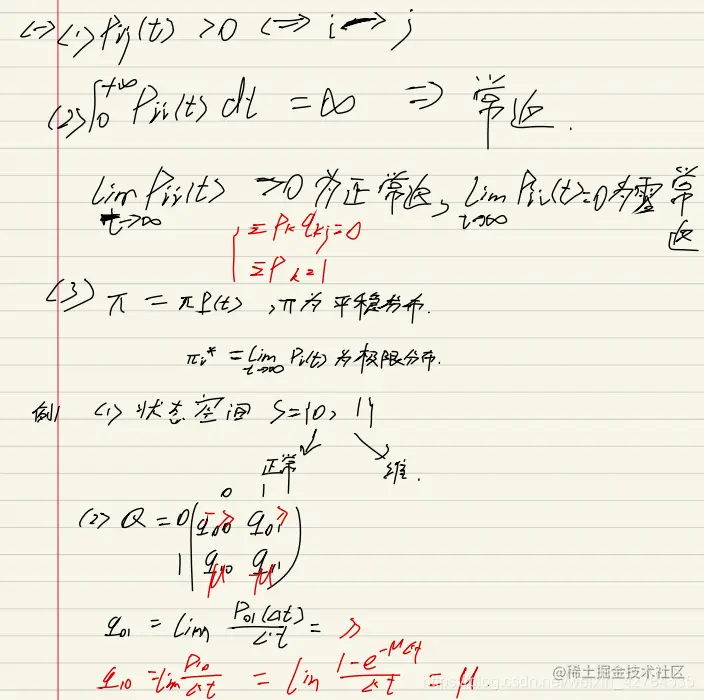 (一)(1) Pij(t) > 0 ⟺ i → j
(2) ∫₀^{+∞} Pii(t) dt = ∞ ⇒ 常返.
lim_{t→∞} Pii(t) >0 为正常返, lim_{t→∞} Pii(t)=0为零常返
Σ Pk qkj = 0
Σ Pk = 1
(3) π = πP(t), π为平稳分布.
πi* = lim_{t→∞} Pi(t) 为极限分布.
例1 (1) 状态空间 S={0, 1}
正常 维.
0 1
(2) Q = 0 ( q00 q01
1 q10 q11 )
-λ λ
μ -μ
q01 = lim P01(Δt)/Δt = λ
q10 = lim P10/Δt = lim (1-e^{-μΔt})/Δt = μ.
@稀土掘金技术社区